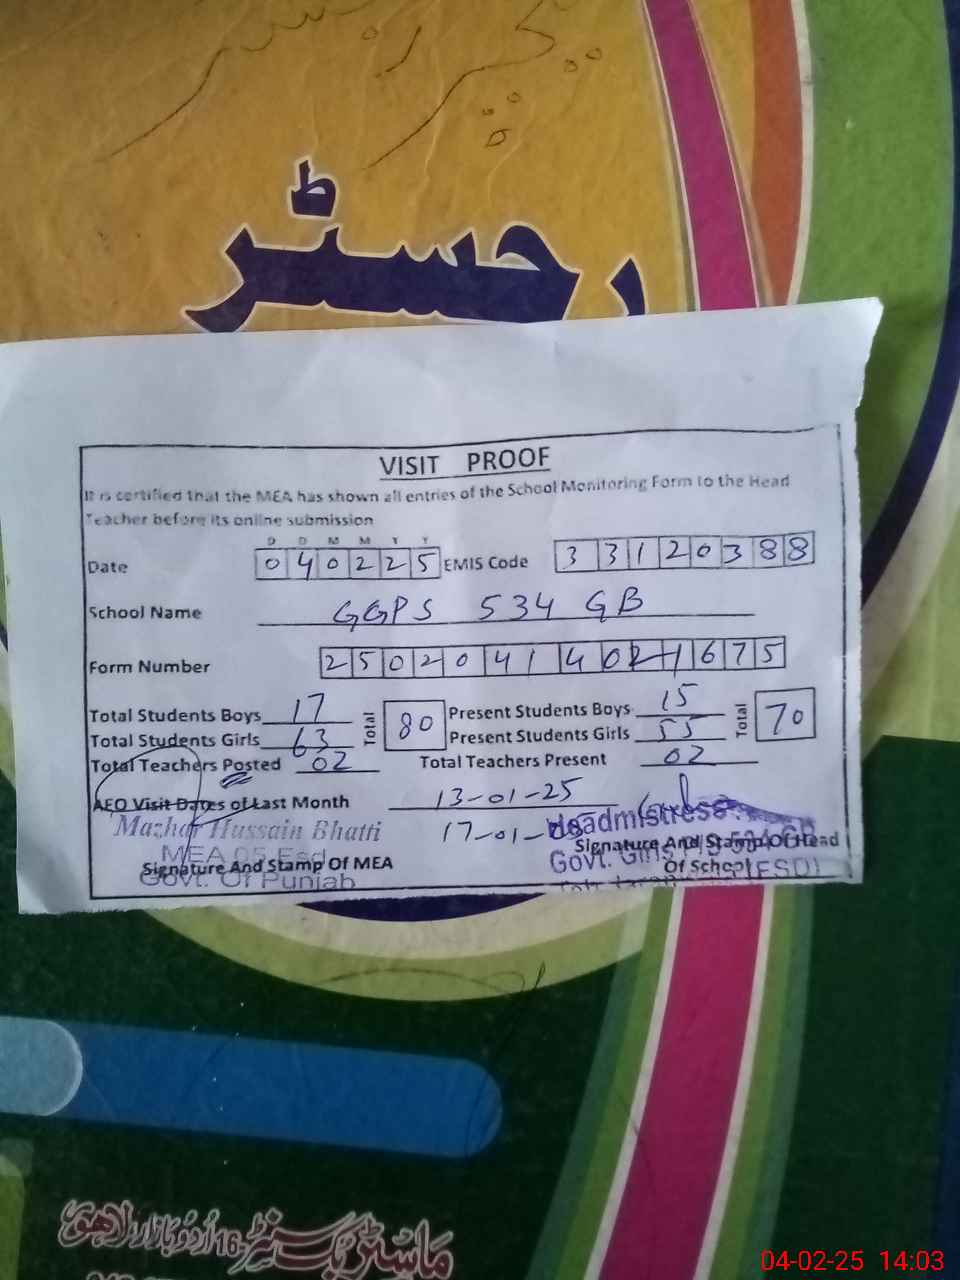 رجسٹر
VISIT PROOF
It is certified that the MEA has shown all entries of the School Monitoring Form to the Head
Teacher before its online submission
D D M M Y Y
Date 040225 EMIS Code 33120388
School Name GGPS 534 GB
Form Number
Total Students Boys 17 Total 80 Present Students Boys 15 Total 70
Total Students Girls 63 Present Students Girls 55
Total Teachers Posted 02 Total Teachers Present 02
AEO Visit Dates of Last Month 13-01-25
17-01-
Mazhar Hussain Bhatti
MEA 05 Esd
Govt. Of Punjab
Signature And Stamp Of MEA
Headmistress
Govt. Girls P/S 534 GB
Signature And Stamp Of Head
Of School
04-02-25 14:03